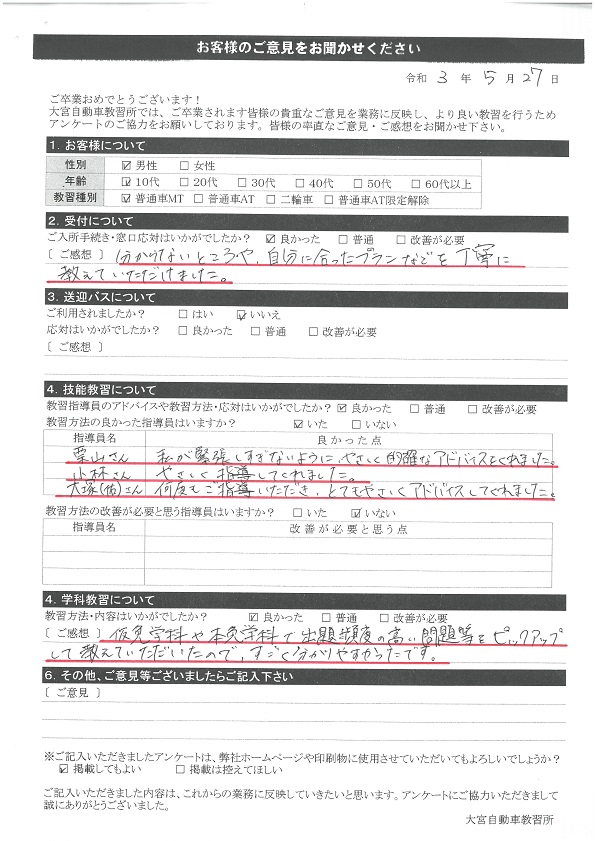 お客様のご意見をお聞かせください
令和 3 年 5 月 27 日
ご卒業おめでとうございます!
大宮自動車教習所では、ご卒業されます皆様の貴重なご意見を業務に反映し、より良い教習を行うため
アンケートのご協力をお願いしております。皆様の率直なご意見・ご感想をお聞かせ下さい。
1. お客様について
性別 ☑ 男性 □ 女性
年齢 ☑ 10代 □ 20代 □ 30代 □ 40代 □ 50代 □ 60代以上
教習種別 ☑ 普通車MT □ 普通車AT □ 二輪車 □ 普通車AT限定解除
2. 受付について
ご入所手続き・窓口応対はいかがでしたか? ☑ 良かった □ 普通 □ 改善が必要
〔ご感想〕 分からないところや、自分に合ったプランなどを丁寧に
教えていただけました。
3. 送迎バスについて
ご利用されましたか? □ はい ☑ いいえ
応対はいかがでしたか? □ 良かった □ 普通 □ 改善が必要
〔ご感想〕
4. 技能教習について
教習指導員のアドバイスや教習方法・応対はいかがでしたか? ☑ 良かった □ 普通 □ 改善が必要
教習方法の良かった指導員はいますか? ☑ いた □ いない
指導員名 良かった点
栗山さん 私が緊張しすぎないように、やさしく的確なアドバイスをくれました。
小林さん やさしく指導してくれました。
大塚(佑)さん 何度もご指導いただき、とてもやさしくアドバイスしてくれました。
教習方法の改善が必要と思う指導員はいますか? □ いた ☑ いない
指導員名 改善が必要と思う点
4. 学科教習について
教習方法・内容はいかがでしたか? ☑ 良かった □ 普通 □ 改善が必要
〔ご感想〕 仮免学科や本免学科で出題頻度の高い問題等をピックアップ
して教えていただいたので、すごく分かりやすかったです。
6. その他、ご意見等ございましたらご記入下さい
〔ご意見〕
※ご記入いただきましたアンケートは、弊社ホームページや印刷物に使用させていただいてもよろしいでしょうか?
☑ 掲載してもよい □ 掲載は控えてほしい
ご記入いただきました内容は、これからの業務に反映していきたいと思います。アンケートにご協力いただきまして
誠にありがとうございました。
大宮自動車教習所